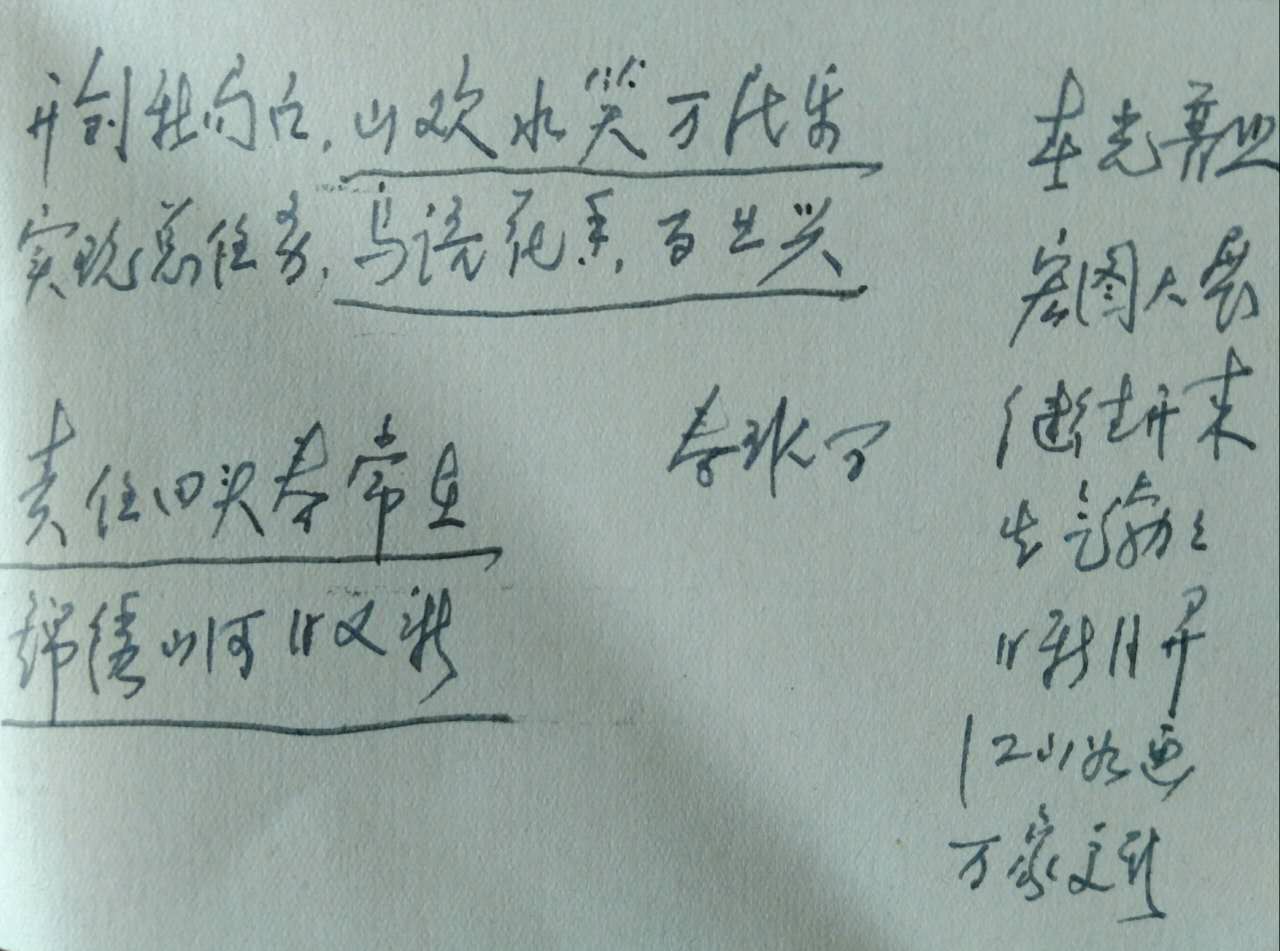 开创新局面,山欢水笑万代乐
实现总任务,鸟语花香,百世兴
责任田头春常在
锦绣山河日又新
春联
春光普照
宏图大展
继往开来
生气勃々
日新月异
江山如画
万家更新